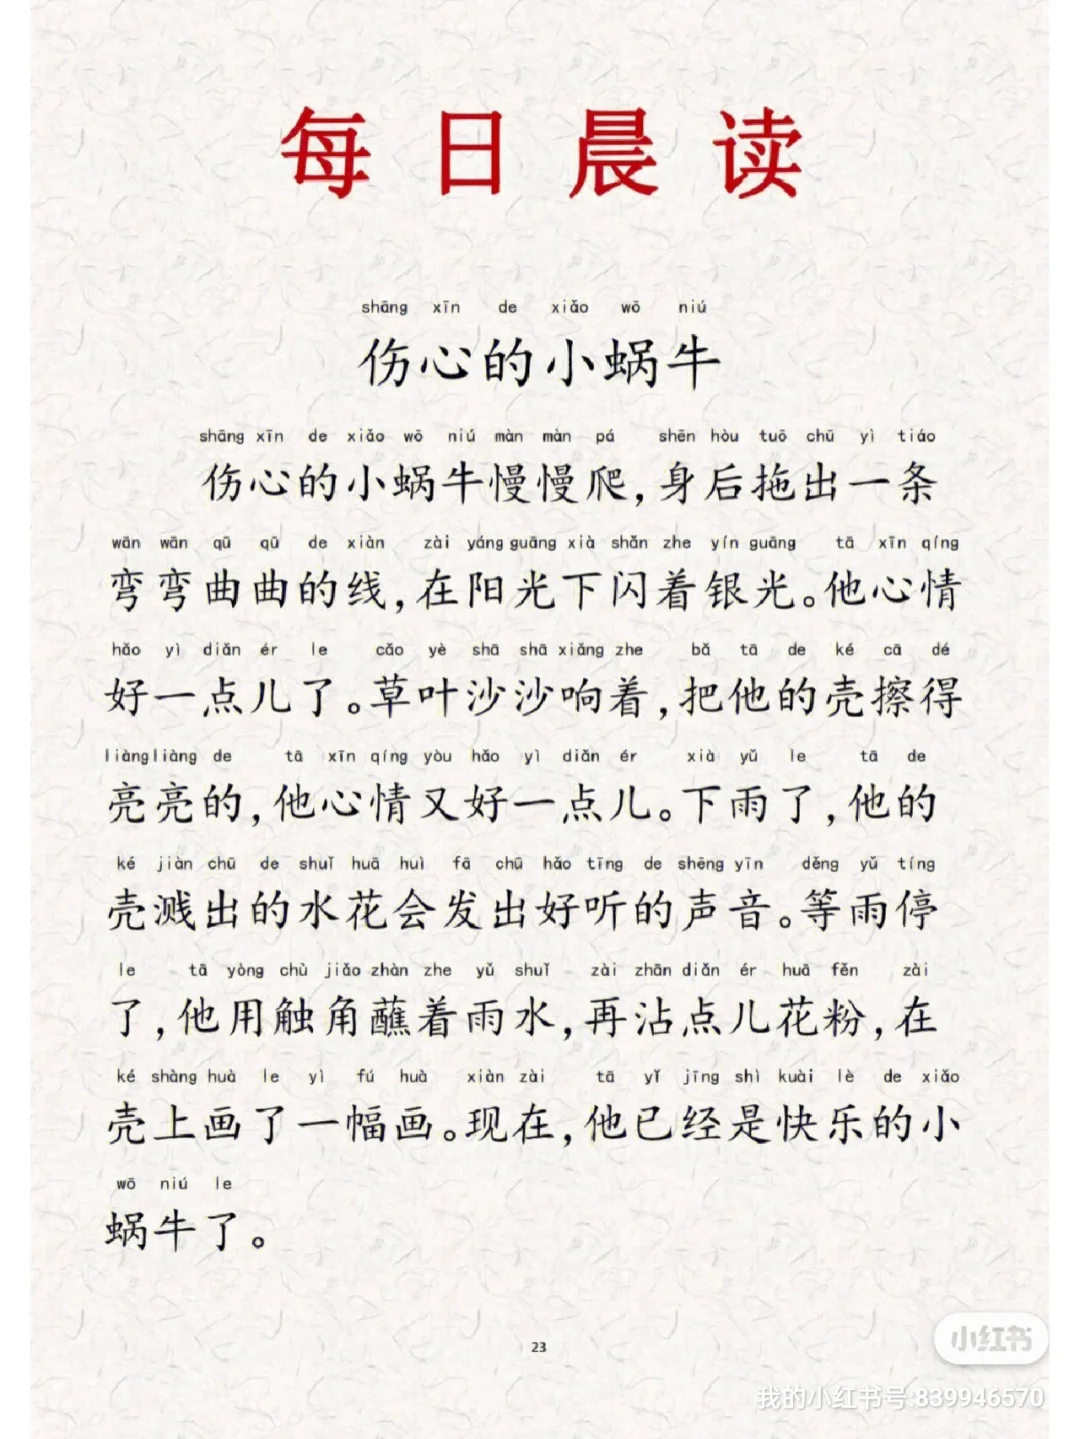 每日晨读
shāng xīn de xiǎo wō niú
伤心的小蜗牛
shāng xīn de xiǎo wō niú màn màn pá shēn hòu tuō chū yì tiáo
伤心的小蜗牛慢慢爬,身后拖出一条
wān wān qū qū de xiàn zài yáng guāng xià shǎn zhe yín guāng tā xīn qíng
弯弯曲曲的线,在阳光下闪着银光。他心情
hǎo yì diǎn ér le cǎo yè shā shā xiǎng zhe bǎ tā de ké cā dé
好一点儿了。草叶沙沙响着,把他的壳擦得
liàng liàng de tā xīn qíng yòu hǎo yì diǎn ér xià yǔ le tā de
亮亮的,他心情又好一点儿。下雨了,他的
ké jiàn chū de shuǐ huā huì fā chū hǎo tīng de shēng yīn děng yǔ tíng
壳溅出的水花会发出好听的声音。等雨停
le tā yòng chù jiǎo zhàn zhe yǔ shuǐ zài zhān diǎn ér huā fěn zài
了,他用触角蘸着雨水,再沾点儿花粉,在
ké shàng huà le yì fú huà xiàn zài tā yǐ jīng shì kuài lè de xiǎo
壳上画了一幅画。现在,他已经是快乐的小
wō niú le
蜗牛了。
23
小红书
我的小红书号:839946570